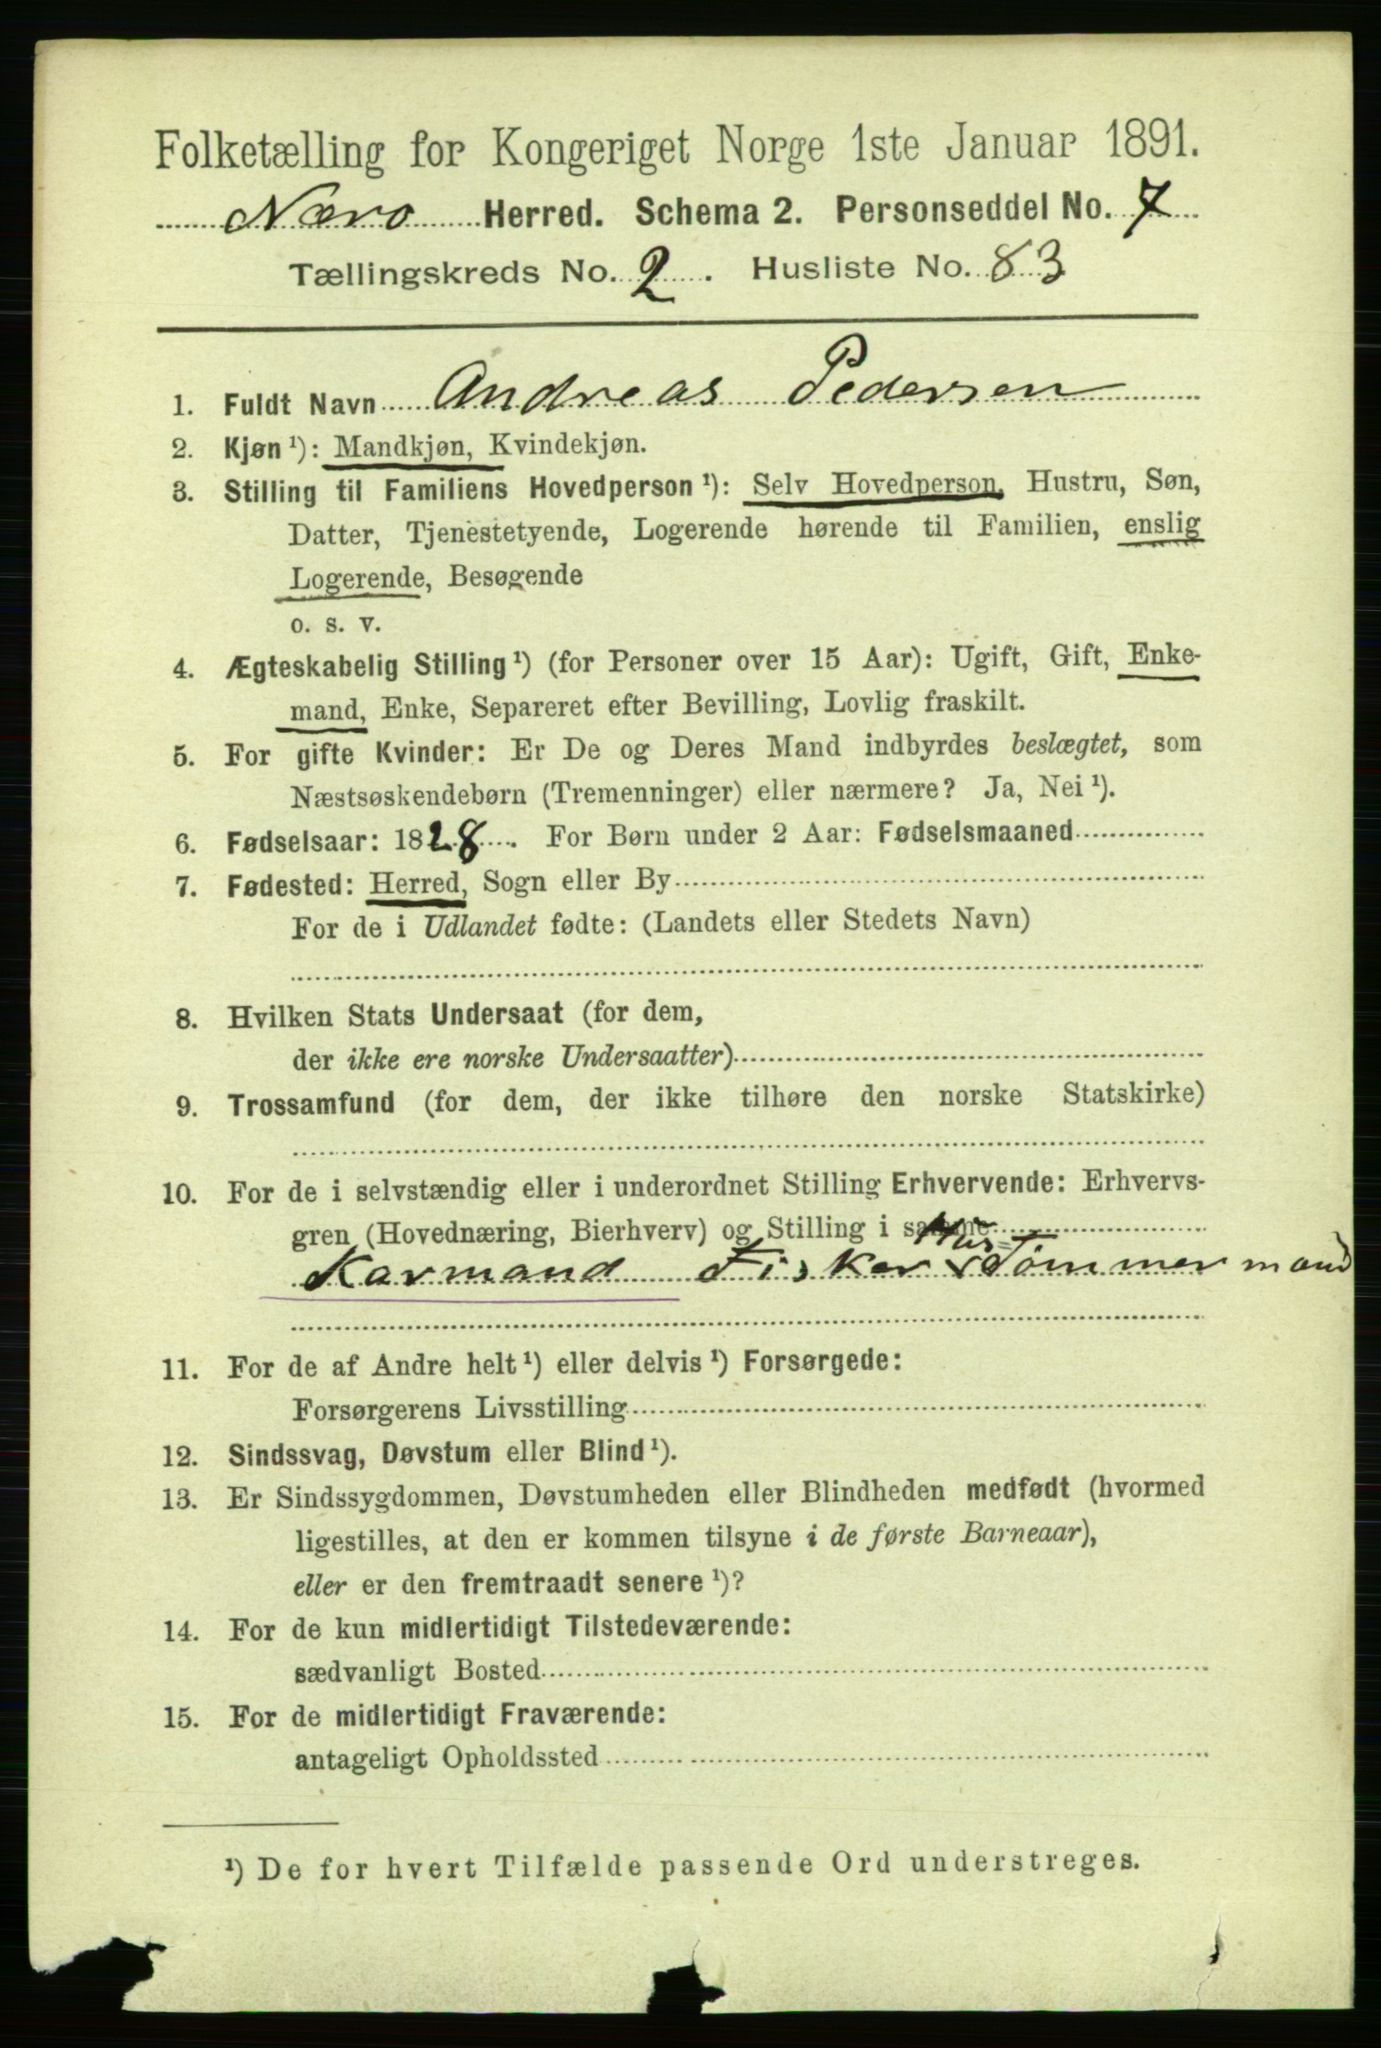 Folketælling for Kongeriget Norge 1ste Januar 1891.
Nærø Herred. Schema 2. Personseddel No. 7
Tællingskreds No. 2. Husliste No. 83
1. Fuldt Navn Andreas Pedersen
2. Kjøn ¹): Mandkjøn, Kvindekjøn.
3. Stilling til Familiens Hovedperson ¹): Selv Hovedperson, Hustru, Søn,
Datter, Tjenestetyende, Logerende hørende til Familien, enslig
Logerende, Besøgende
o. s. v.
4. Ægteskabelig Stilling ¹) (for Personer over 15 Aar): Ugift, Gift, Enke-
mand, Enke, Separeret efter Bevilling, Lovlig fraskilt.
5. For gifte Kvinder: Er De og Deres Mand indbyrdes beslægtet, som
Næstsøskendebørn (Tremenninger) eller nærmere? Ja, Nei ¹).
6. Fødselsaar: 1828. For Børn under 2 Aar: Fødselsmaaned
7. Fødested: Herred, Sogn eller By
For de i Udlandet fødte: (Landets eller Stedets Navn)
8. Hvilken Stats Undersaat (for dem,
der ikke ere norske Undersaatter)
9. Trossamfund (for dem, der ikke tilhøre den norske Statskirke)
10. For de i selvstændig eller i underordnet Stilling Erhvervende: Erhvervs-
gren (Hovednæring, Bierhverv) og Stilling i samme
Karmand Fisker Hus=Tømmermand
11. For de af Andre helt ¹) eller delvis ¹) Forsørgede:
Forsørgerens Livsstilling
12. Sindssvag, Døvstum eller Blind ¹).
13. Er Sindssygdommen, Døvstumheden eller Blindheden medfødt (hvormed
ligestilles, at den er kommen tilsyne i de første Barneaar),
eller er den fremtraadt senere ¹)?
14. For de kun midlertidigt Tilstedeværende:
sædvanligt Bosted
15. For de midlertidigt Fraværende:
antageligt Opholdssted
¹) De for hvert Tilfælde passende Ord understreges.